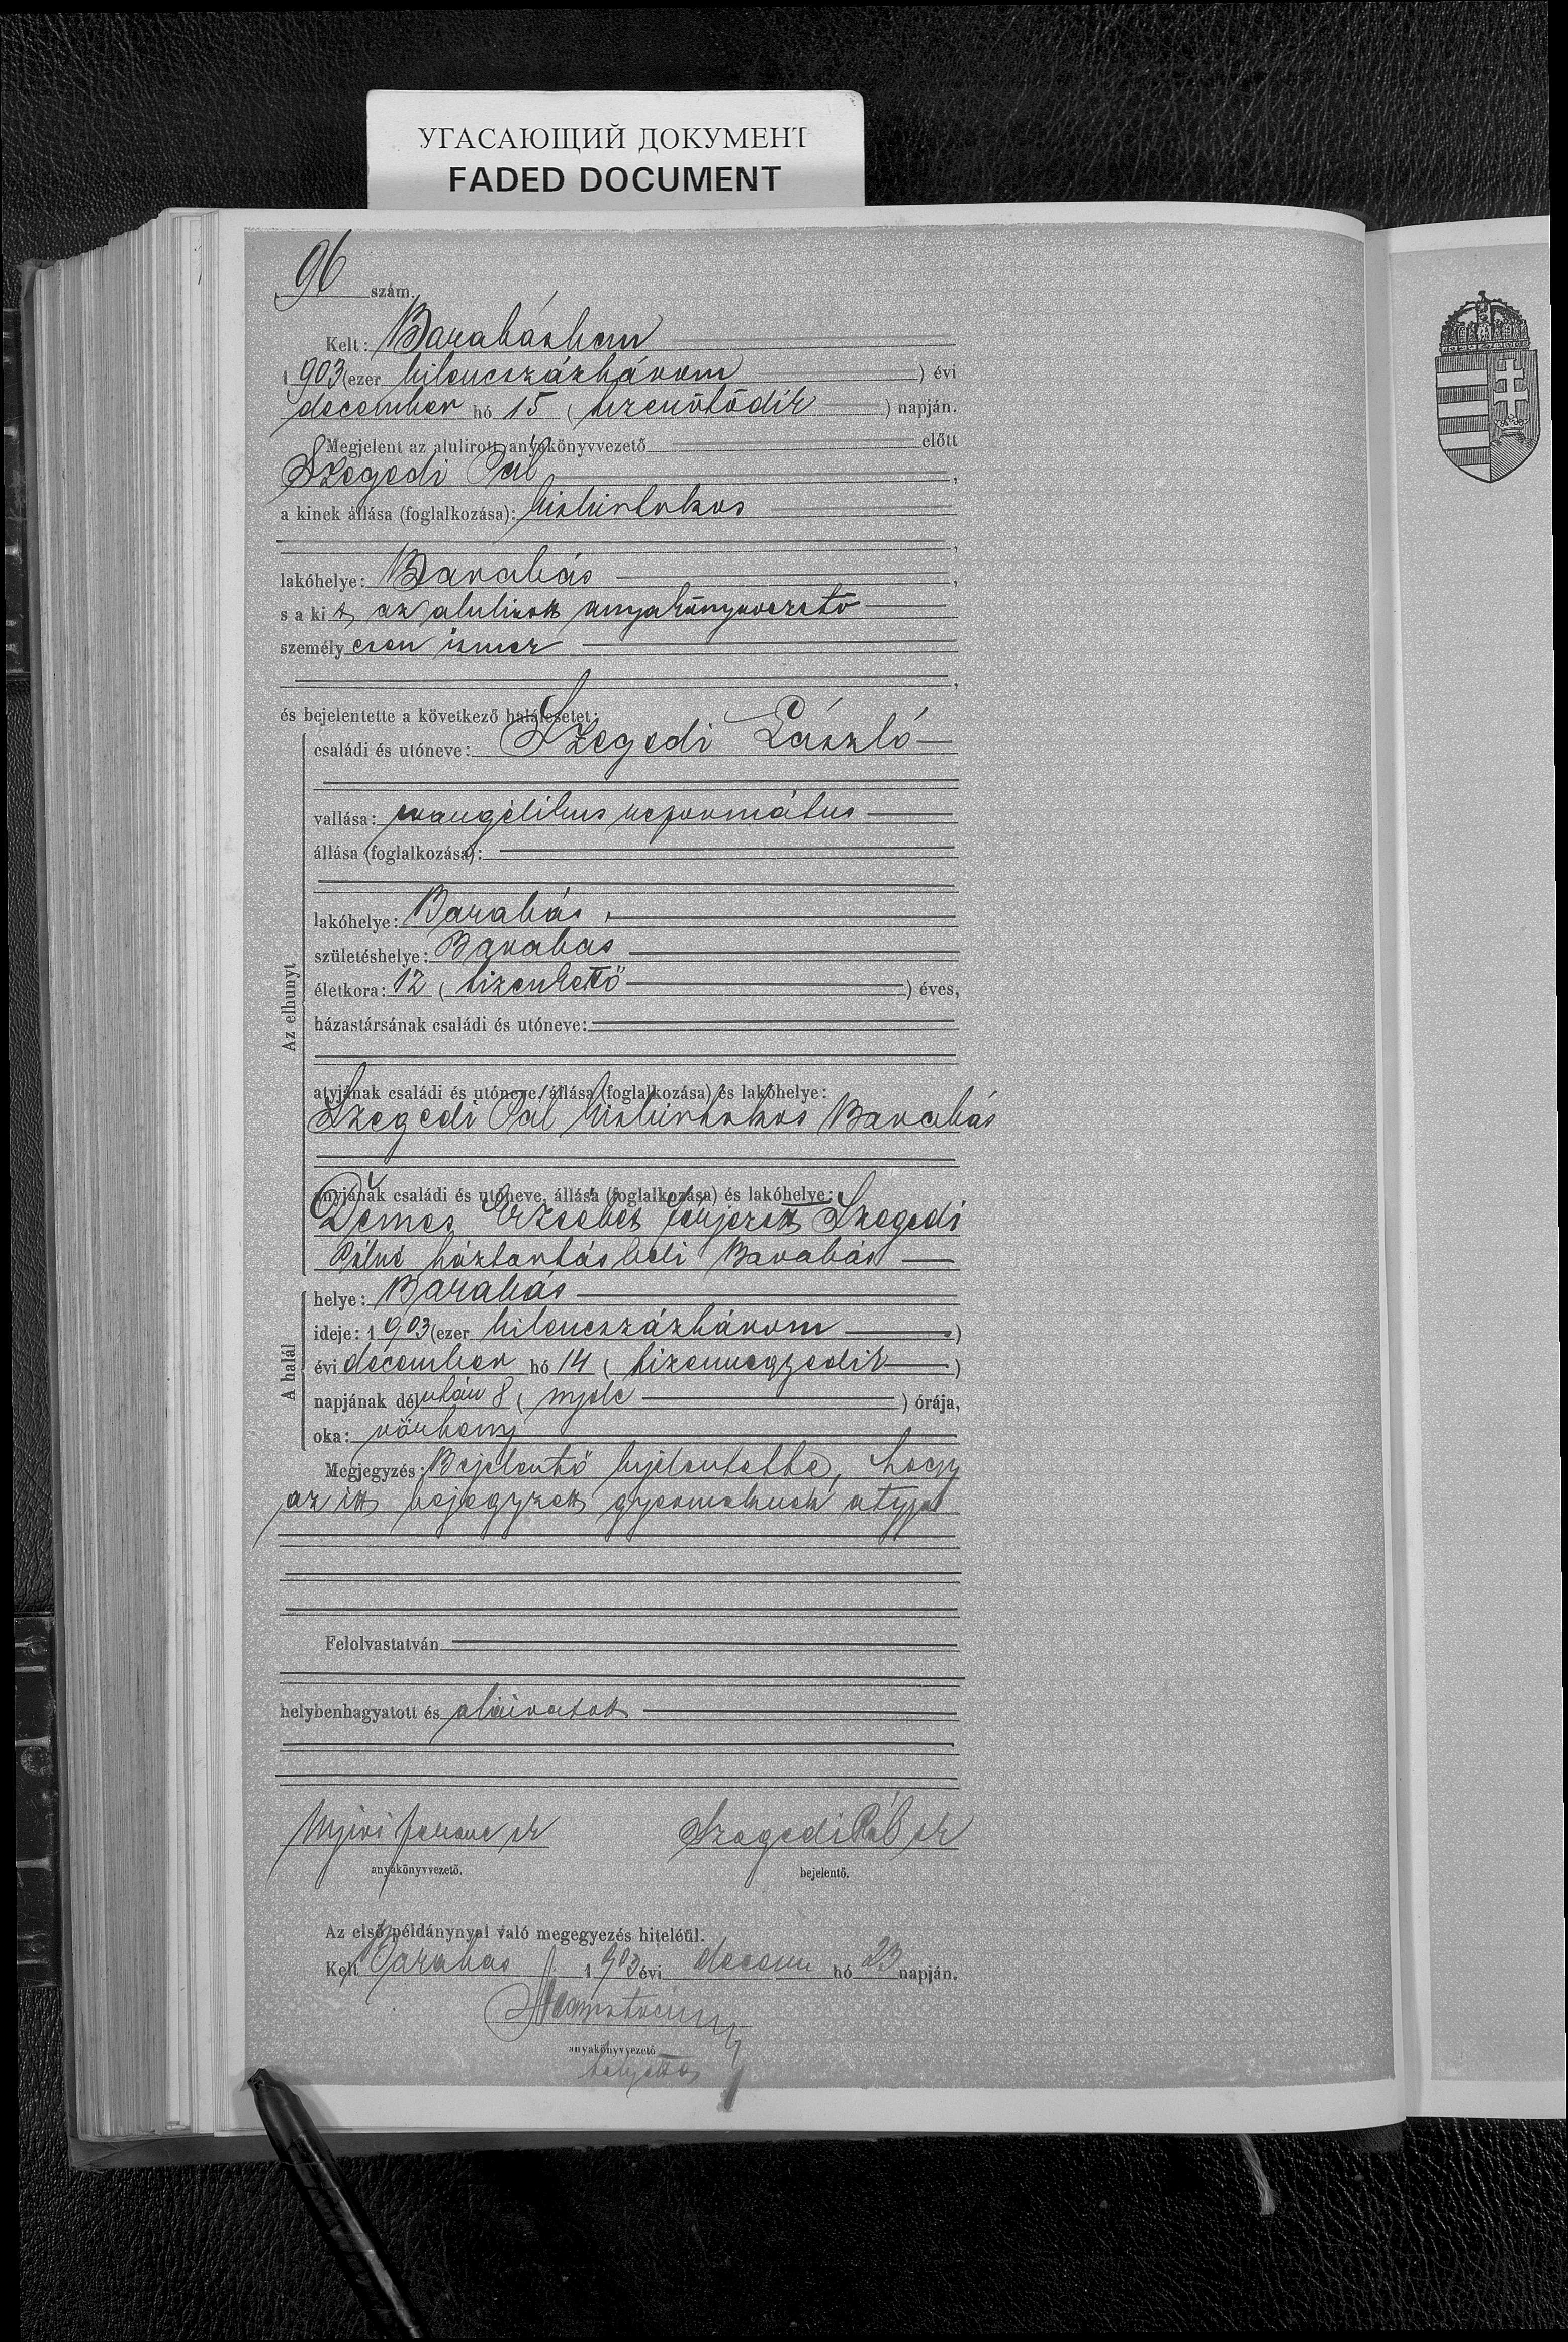 УГАСАЮЩИЙ ДОКУМЕНТ
FADED DOCUMENT
96 szám.
Kelt: Barabásban
1903 (ezer kilencszázhárom ) évi
december hó 15 ( tizenötödik ) napján.
Megjelent az alulirott anyakönyvvezető előtt
Szegedi Pál,
a kinek állása (foglalkozása): kisbirtokos
lakóhelye: Barabás,
s a kit az alulirott anyakönyvvezető
személyesen ismer,
és bejelentette a következő halálesetet:
Az elhunyt
családi és utóneve: Szegedi László
vallása: evangélikus református
állása (foglalkozása):
lakóhelye: Barabás,
születéshelye: Barabas
életkora: 12 ( tizenkettő ) éves,
házastársának családi és utóneve:
atyjának családi és utóneve, állása (foglalkozása) és lakóhelye:
Szegedi Pál kisbirtokos Barabás
anyjának családi és utóneve, állása (foglalkozása) és lakóhelye:
Demes Erzsébet férjezett Szegedi
Pálné háztartásbeli Barabás
A halál
helye: Barabás
ideje: 1903 (ezer kilencszázhárom )
évi december hó 14 ( tizennegyedik )
napjának délután 8 ( nyolc ) órája,
oka: vörheny
Megjegyzés: Bejelentő kijelentette, hogy
az itt bejegyzett gyermeknek atyja
Felolvastatván
helybenhagyatott és aláiratott
Ferenc sk Szegedi Pál sk
anyakönyvvezető. bejelentő.
Az első példánynyal való megegyezés hiteléül.
Kelt Barabas 1903 évi decem hó 23 napján.
anyakönyvvezető
helyettes